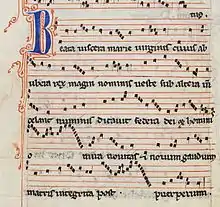 Beata viscera marie virginis cuius ad
ubera rex magni nominis veste sub altera
celans numinis dictavit federa dei et hominis
o mira novitas et novum gaudium
matris integrita post puerperium